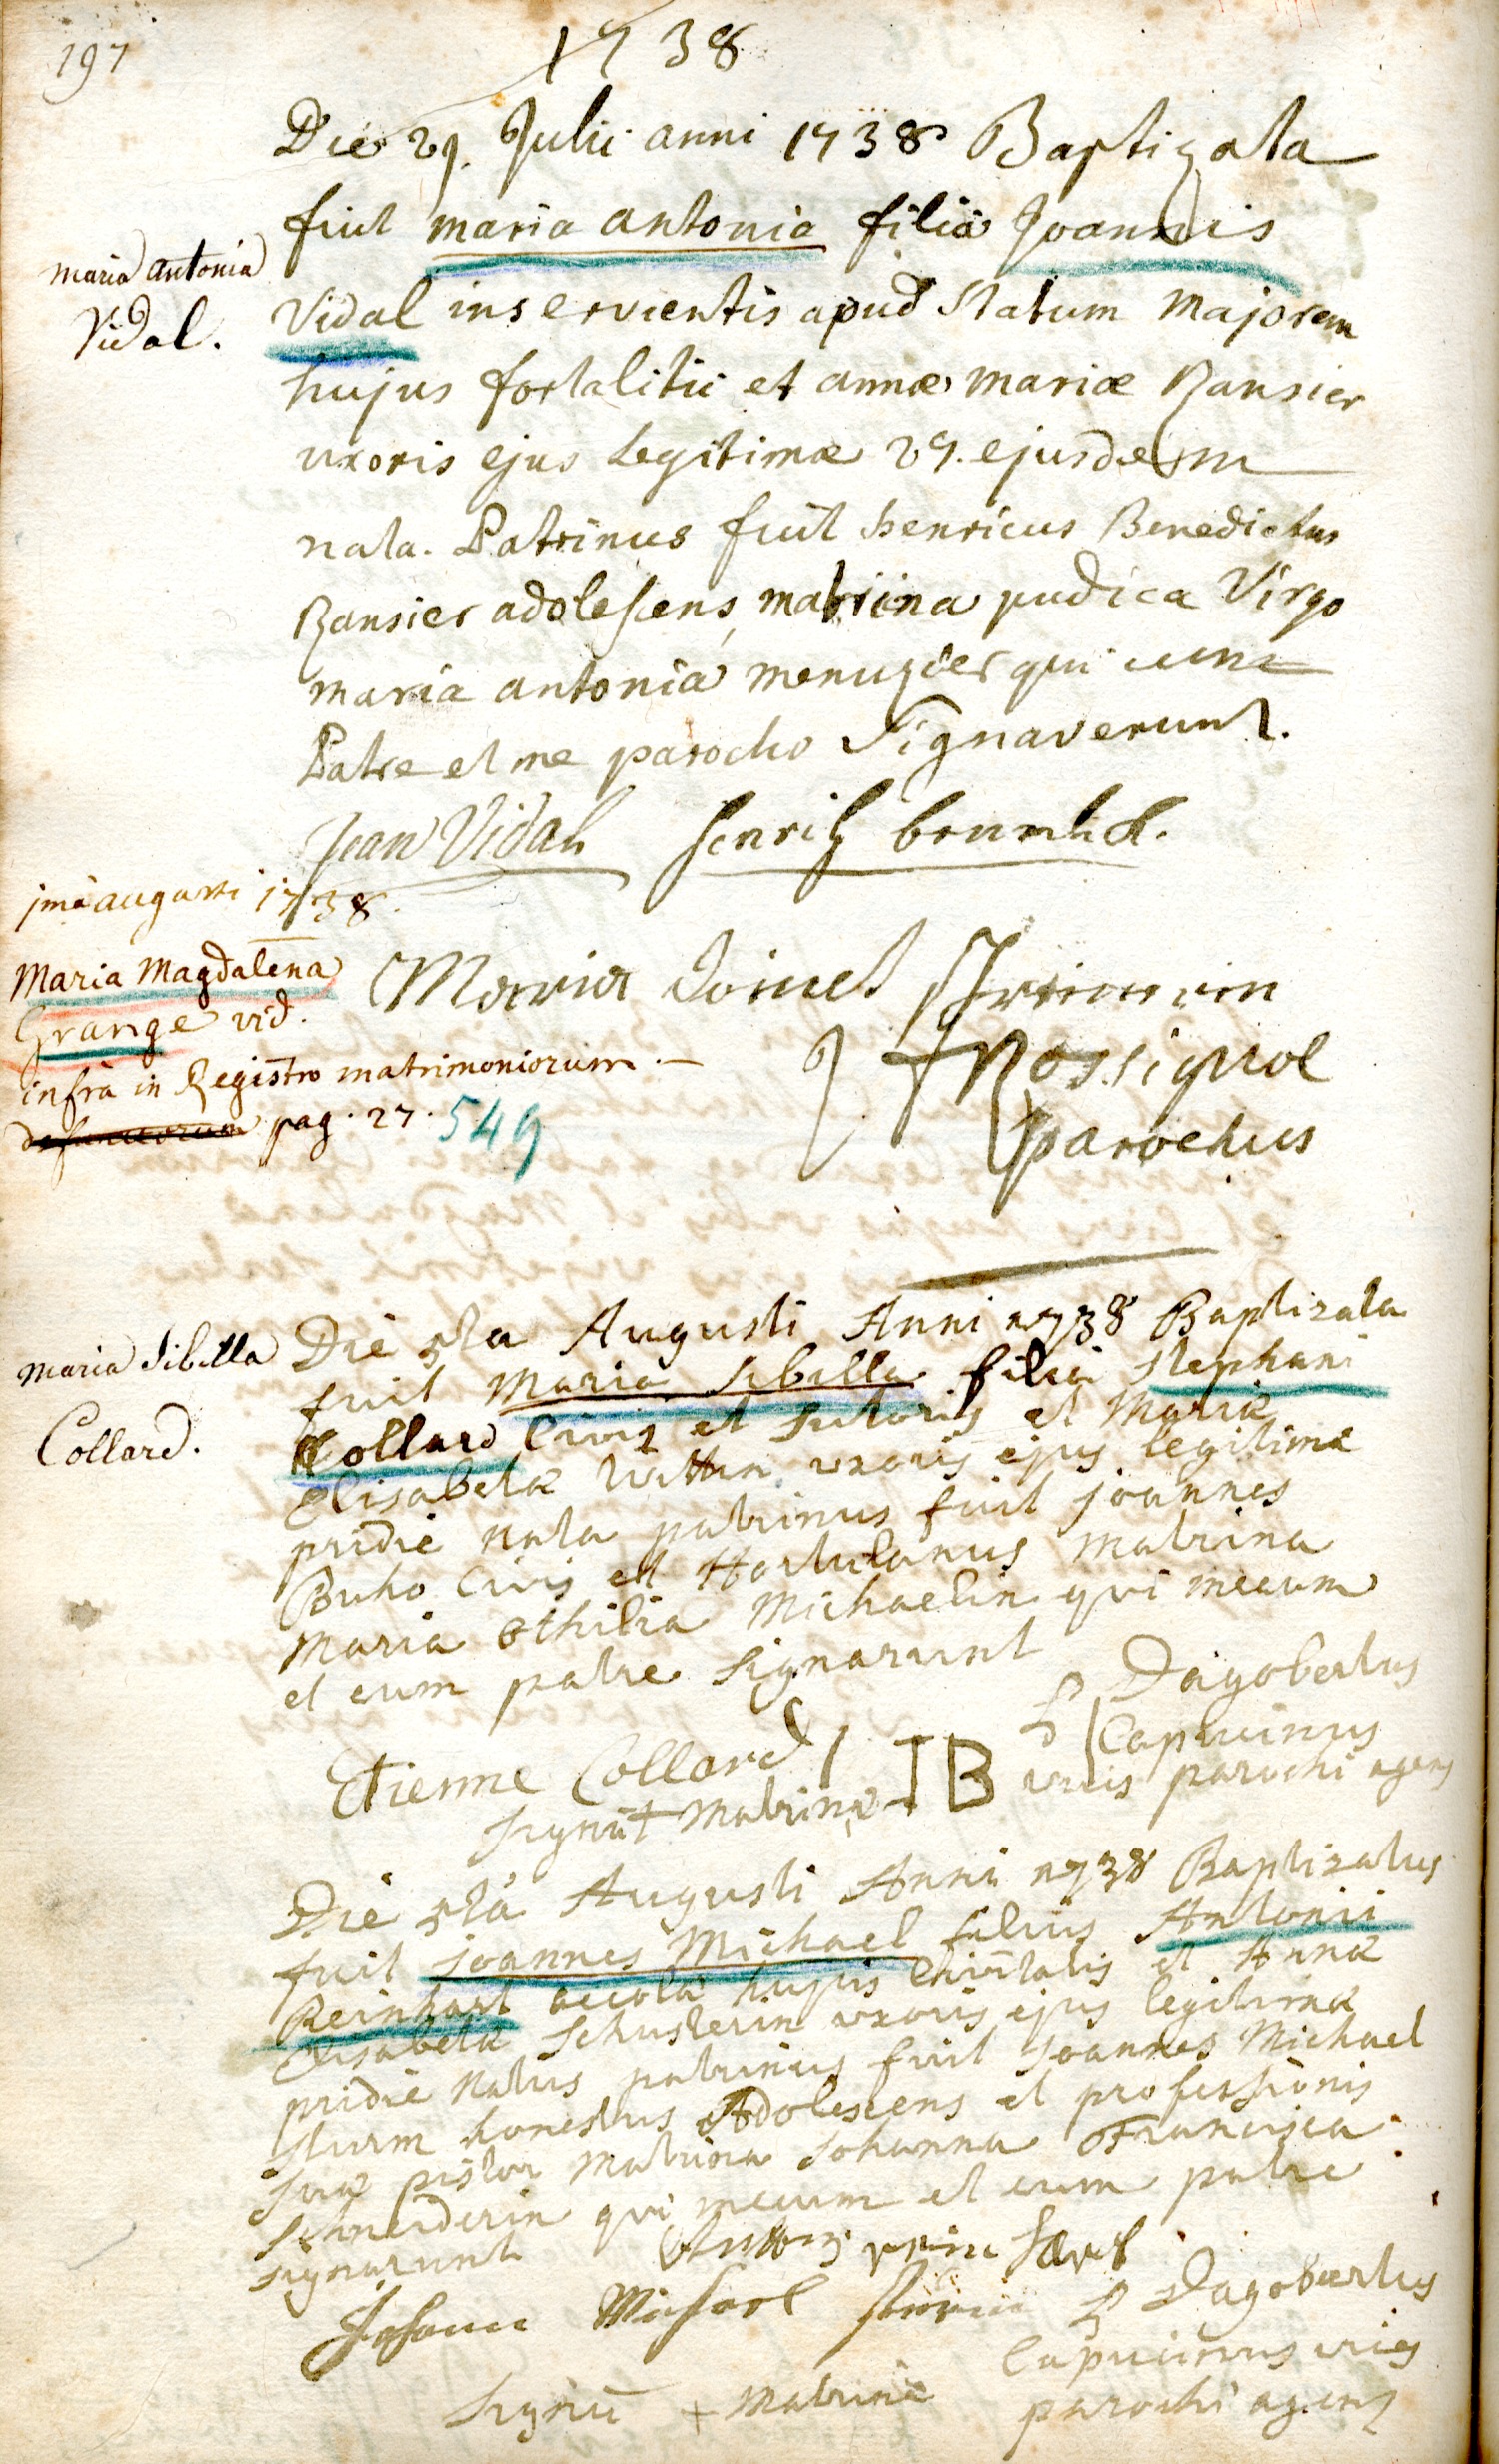 197
1738
Die 29. Julii anni 1738 Baptizata
fuit maria antonia filia Joannis
maria antonia
Vidal.
Vidal inservientis apud Statum Majorem
hujus fortalitii et annæ mariæ Ransier
uxoris ejus Legitimæ 29. ejusdem
nata. Patrinus fuit henricus Benedictus
Ransier adolescens, matrina pudica Virgo
maria antonia menuzier qui cum
Patre et me parocho Signaverunt.
Jean Vidal
jma augusti 1738.
Maria Magdalena
Grange vid.
infra in Registro matrimoniorum.
defunctorum pag. 27. 549
Maria
J F Rossignol
parochus
maria Sibilla
Collard.
Die 5ta Augusti Anni 1738 Baptizata
fuit Maria Sibilla filia Stephani
Collard Civis et Sutoris et Mariæ
Elisabetæ uxoris ejus legitimæ
pridie nata patrinus fuit joannes
Buho Civis et Hortulanus matrina
Maria Othilia Michaelin qui mecum
et cum patre signarunt
P Dagobertus
Capucinus
vices parochi agens
Etienne Collard
IB
signū + Matrinæ
Die 5ta Augusti Anni 1738 Baptizatus
fuit joannes Michael filius Antonii
Reinhart accolæ hujus Civitatis et Annæ
Elisabetæ Schusterin uxoris ejus legitimæ
pridie natus patrinus fuit Joannes Michael
Sturm honestus Adolescens et professionis
suæ pistor Matrina Johanna Francisca
Schneiderin qui mecum et cum patre
signarunt
Johann Michael Sturm
P Dagobertus
Capucinus vices
parochi agens
Signū + Matrinæ